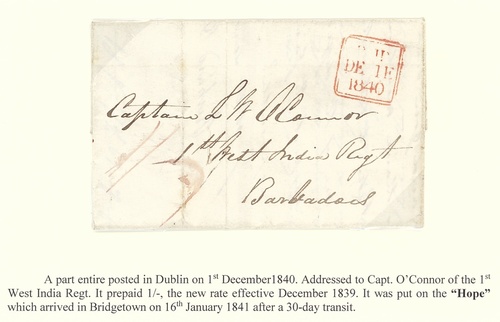 DE 1E
1840
Captain L W O'Connor
1st West India Regt
Barbadoes
1/-
A part entire posted in Dublin on 1st December1840. Addressed to Capt. O'Connor of the 1st
West India Regt. It prepaid 1/-, the new rate effective December 1839. It was put on the “Hope”
which arrived in Bridgetown on 16th January 1841 after a 30-day transit.